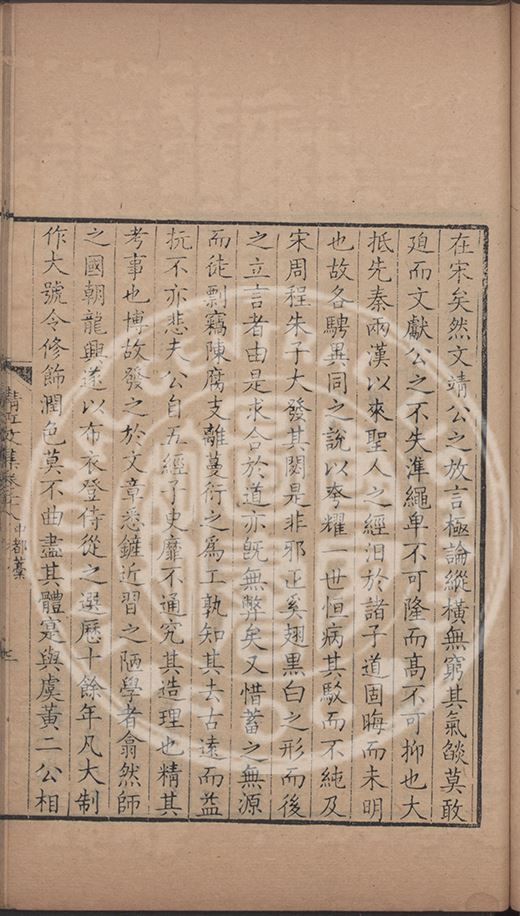 在宋矣然文靖公之放言極論縱橫無窮其氣燄莫敢
廹而文獻公之不失準繩卑不可隆而髙不可抑也大
抵先秦兩漢以來聖人之經汩於諸子道固晦而未明
也故各騁異同之說以夸耀一世恒病其駁而不純及
宋周程朱子大發其閟是非邪正奚翅黒白之形而後
之立言者由是求合於道亦旣無弊矣又惜蓄之無源
而徒剽竊陳腐支離蔓衍之爲工孰知其去古遠而益
抗不亦悲夫公自五經子史靡不通究其造理也精其
考事也博故發之於文章悉鏟近習之陋學者翕然師
之國朝龍興遂以布衣登侍從之選歷十餘年凡大制
作大號令修飾潤色莫不曲盡其體寔與虞黃二公相
清江文集卷十八 中都藁